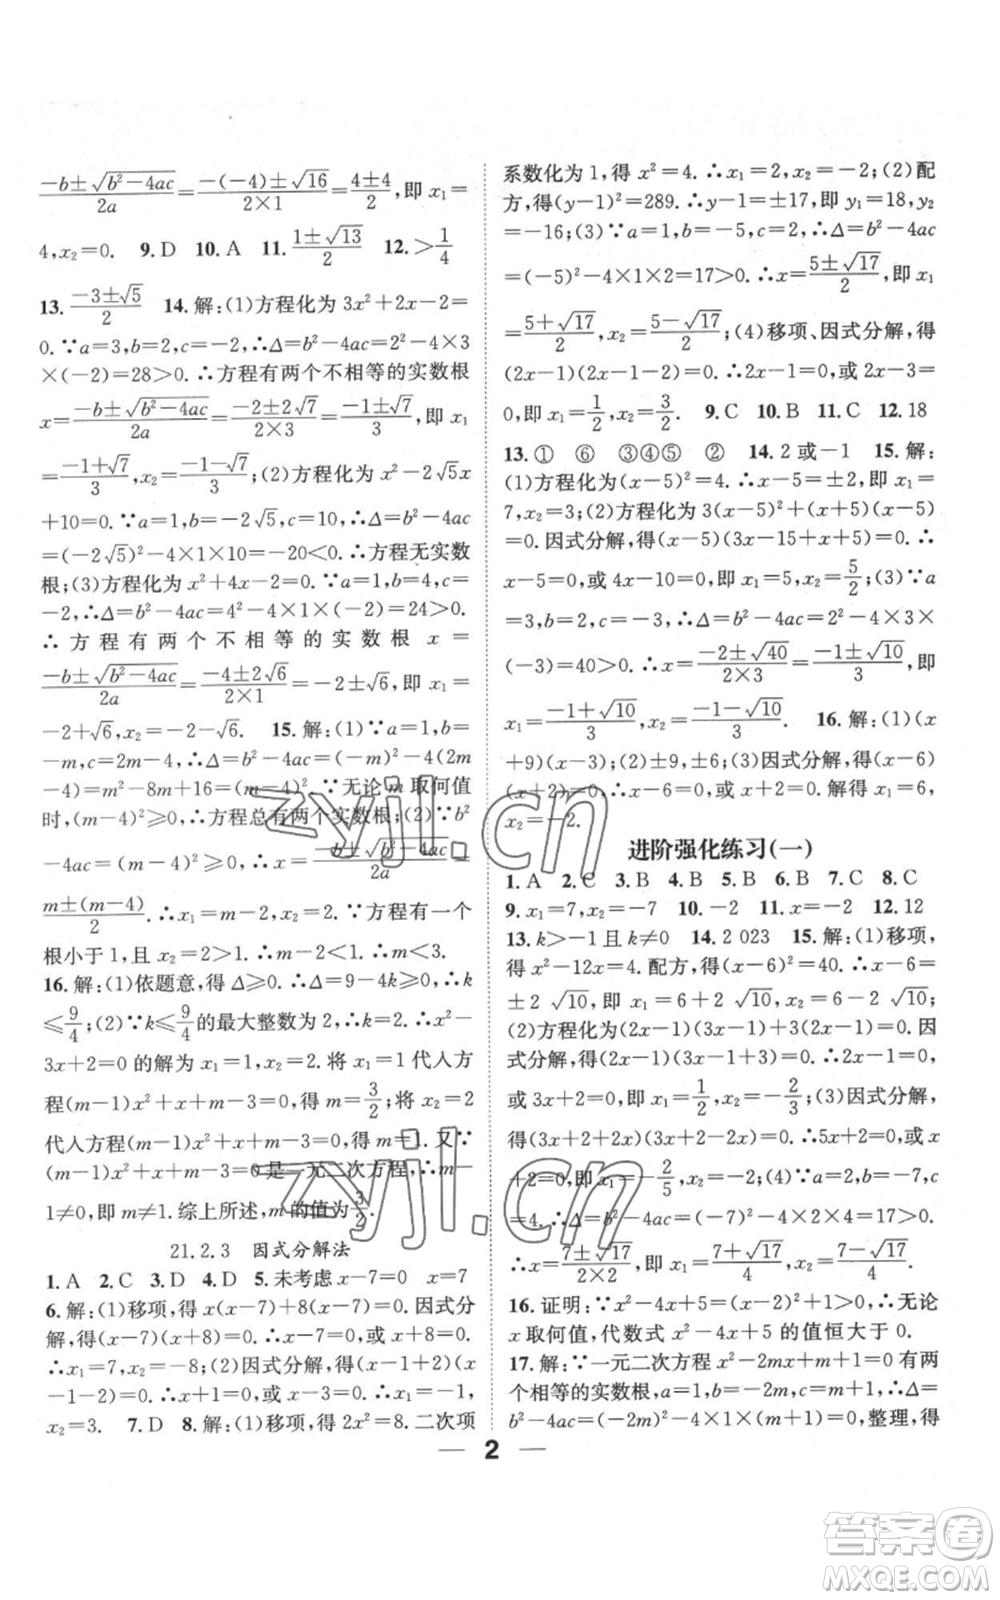 \frac{-b±\sqrt{b²-4ac}}{2a}=\frac{-(-4)±\sqrt{16}}{2×1}=\frac{4±4}{2},即 x₁=
4,x₂=0. 9. D 10. A 11. \frac{1±\sqrt{13}}{2} 12. >\frac{1}{4}
13. \frac{-3±\sqrt{5}}{2} 14. 解:(1)方程化为 3x²+2x-2=
0. ∵a=3,b=2,c=-2,∴Δ=b²-4ac=2²-4×3
×(-2)=28>0. ∴方程有两个不相等的实数根
x=\frac{-b±\sqrt{b²-4ac}}{2a}=\frac{-2±2\sqrt{7}}{2×3}=\frac{-1±\sqrt{7}}{3},即 x₁
=\frac{-1+\sqrt{7}}{3},x₂=\frac{-1-\sqrt{7}}{3};(2)方程化为 x²-2\sqrt{5}x
+10=0. ∵a=1,b=-2\sqrt{5},c=10,∴Δ=b²-4ac
=(-2\sqrt{5})²-4×1×10=-20<0. ∴方程无实数
根;(3)方程化为 x²+4x-2=0. ∵a=1,b=4,c=
-2,∴Δ=b²-4ac=4²-4×1×(-2)=24>0.
∴方程有两个不相等的实数根 x=
\frac{-b±\sqrt{b²-4ac}}{2a}=\frac{-4±2\sqrt{6}}{2×1}=-2±\sqrt{6},即 x₁=
-2+\sqrt{6},x₂=-2-\sqrt{6}. 15. 解:(1)∵a=1,b=
-m,c=2m-4,∴Δ=b²-4ac=(-m)²-4(2m
-4)=m²-8m+16=(m-4)². ∵无论 m 取何值
时,(m-4)²≥0,∴方程总有两个实数根;(2)∵b²
-4ac=(m-4)²≥0,∴x=\frac{-b±\sqrt{b²-4ac}}{2a}=
\frac{m±(m-4)}{2}. ∴x₁=m-2,x₂=2. ∵方程有一个
根小于 1,且 x₂=2>1. ∴m-2<1. ∴m<3.
16. 解:(1)依题意,得 Δ≥0. ∴Δ=9-4k≥0,∴k
≤\frac{9}{4};(2)∵k≤\frac{9}{4}的最大整数为 2,∴k=2. ∴x²-
3x+2=0 的解为 x₁=1,x₂=2. 将 x₁=1 代人方
程(m-1)x²+x+m-3=0,得 m=\frac{3}{2};将 x₂=2
代人方程(m-1)x²+x+m-3=0,得 m=1. 又∵
(m-1)x²+x+m-3=0 是一元二次方程,∴m-
1≠0,即 m≠1. 综上所述,m 的值为\frac{3}{2}.
21.2.3 因式分解法
1. A 2. C 3. D 4. D 5. 未考虑 x-7=0 x=7
6. 解:(1)移项,得 x(x-7)+8(x-7)=0. 因式分
解,得(x-7)(x+8)=0. ∴x-7=0,或 x+8=0.
∴x₁=7,x₂=-8;(2)因式分解,得(x-2+1)(x
-2-1)=0. ∴x+1=0,或 x-3=0. ∴x₁=-1,
x₂=3. 7. D 8. 解:(1)移项,得 2x²=8. 二次项
系数化为 1,得 x²=4. ∴x₁=2,x₂=-2;(2)配
方,得(y-1)²=289. ∴y-1=±17,即 y₁=18,y₂
=-16;(3)∵a=1,b=-5,c=2,∴Δ=b²-4ac=
(-5)²-4×1×2=17>0. ∴x=\frac{5±\sqrt{17}}{2},即 x₁
=\frac{5+\sqrt{17}}{2},x₂=\frac{5-\sqrt{17}}{2};(4)移项、因式分解,得
(2x-1)(2x-1-2)=0. ∴2x-1=0,或 2x-3=
0,即 x₁=\frac{1}{2},x₂=\frac{3}{2}. 9. C 10. B 11. C 12. 18
13. ① ⑥ ③④⑤ ② 14. 2 或-1 15. 解:
(1)方程化为(x-5)²=4. ∴x-5=±2,即 x₁=
7,x₂=3;(2)方程化为 3(x-5)²+(x+5)(x-5)
=0. 因式分解,得(x-5)(3x-15+x+5)=0. ∴
x-5=0,或 4x-10=0. ∴x₁=5,x₂=\frac{5}{2};(3)∵a
=3,b=2,c=-3,∴Δ=b²-4ac=2²-4×3×
(-3)=40>0. ∴x=\frac{-2±\sqrt{40}}{2×3}=\frac{-1±\sqrt{10}}{3},即
x₁=\frac{-1+\sqrt{10}}{3},x₂=\frac{-1-\sqrt{10}}{3}. 16. 解:(1)(x
+9)(x-3);(2)±9,±6;(3)因式分解,得(x-6)
(x+2)=0. ∴x-6=0,或 x+2=0. ∴x₁=6,
x₂=-2.
进阶强化练习(一)
1. A 2. C 3. B 4. B 5. B 6. B 7. C 8. C
9. x₁=7,x₂=-7 10. -2 11. x=2 12. 12
13. k>-1 且 k≠0 14. 2 023 15. 解:(1)移项,
得 x²-12x=4. 配方,得(x-6)²=40. ∴x-6=
±2\sqrt{10},即 x₁=6+2\sqrt{10},x₂=6-2\sqrt{10};
(2)方程化为(2x-1)(3x-1)+3(2x-1)=0. 因
式分解,得(2x-1)(3x-1+3)=0. ∴2x-1=0,
或 3x+2=0,即 x₁=\frac{1}{2},x₂=-\frac{2}{3};(3)因式分解,
得(2x+3+3x-1)(2x+3-3x-2)=0. ∴5x+2=0,或-x
+2=0,即 x₁=-\frac{2}{5},x₂=2;(4)∵a=2,b=-7,c
=4. ∴Δ=b²-4ac=(-7)²-4×2×4=17>0.
∴x=\frac{7±\sqrt{17}}{2×2},即 x₁=\frac{7+\sqrt{17}}{4},x₂=\frac{7-\sqrt{17}}{4}.
16. 证明:∵x²-4x+5=(x-2)²+1>0,∴无论
x 取何值,代数式 x²-4x+5 的值恒大于 0.
17. 解:∵一元二次方程 x²-2mx+m+1=0 有两
个相等的实数根,a=1,b=-2m,c=m+1,∴Δ=
b²-4ac=(-2m)²-4×1×(m+1)=0,整理,得
2
zyjl.cn
zyjl.cn
答案圈
MXQE.COM